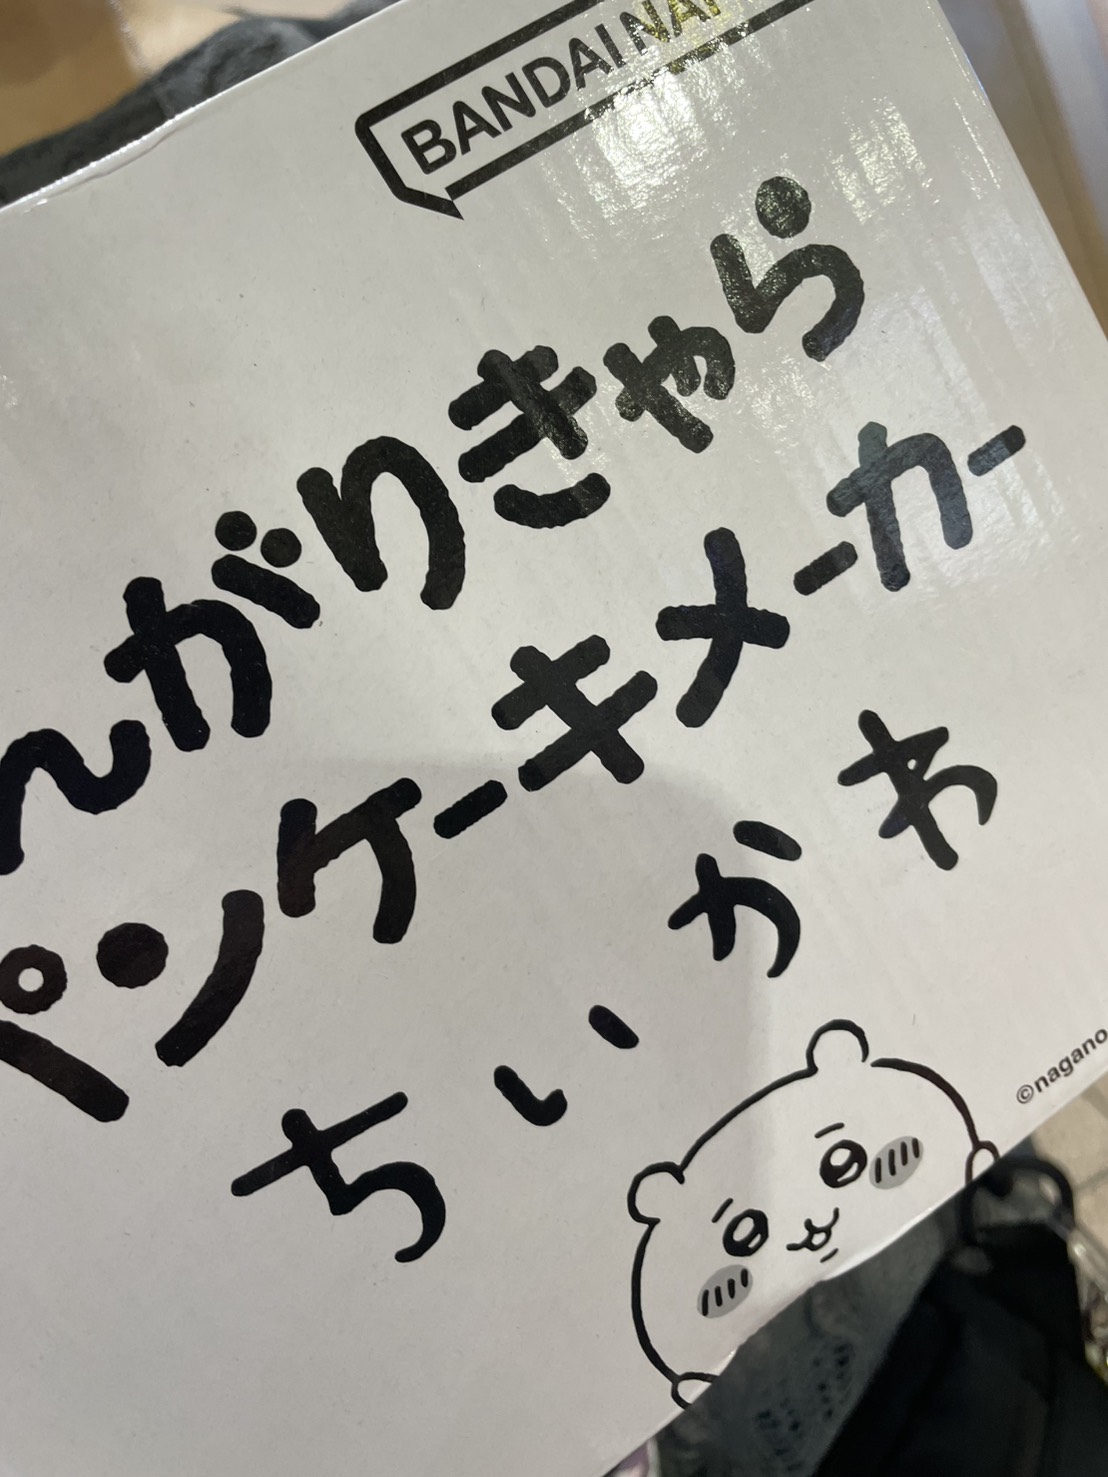 BANDAI NAM
んがりきゃら
パンケーキメーカー
ちいかわ
©nagano